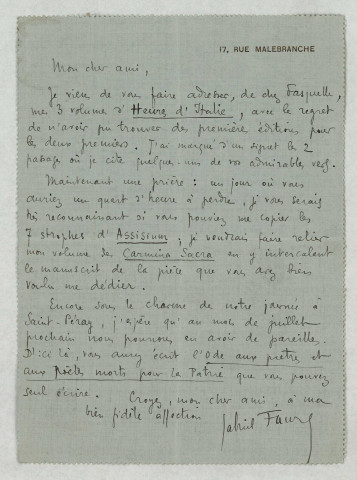 17, RUE MALEBRANCHE
Mon cher ami,
Je viens de vous faire adresser, de chez Fasquelle,
mes 3 volumes d'Heures d'Italie, avec le regret
de n'avoir pu trouver des premières éditions pour
les deux premiers. J'ai marqué d'un signet les 2
passages où je cite quelques-uns de vos admirables vers.
Maintenant une prière : un jour où vous
auriez un quart d'heure à perdre, je vous serais
très reconnaissant si vous pouviez me copier les
7 strophes d'Assisium ; je voudrais faire relier
mon volume des Carmina Sacra en y intercalant
le manuscrit de la pièce que vous avez bien
voulu me dédier.
Encore sous le charme de notre journée à
Saint-Péray, j'espère qu'au mois de juillet
prochain nous pourrons en avoir de pareilles.
D'ici là, vous aurez écrit l'Ode aux prêtres et
aux Poètes morts pour la Patrie que vous pouvez
seul écrire. Croyez, mon cher ami, à ma
bien fidèle affection
Gabriel Faure